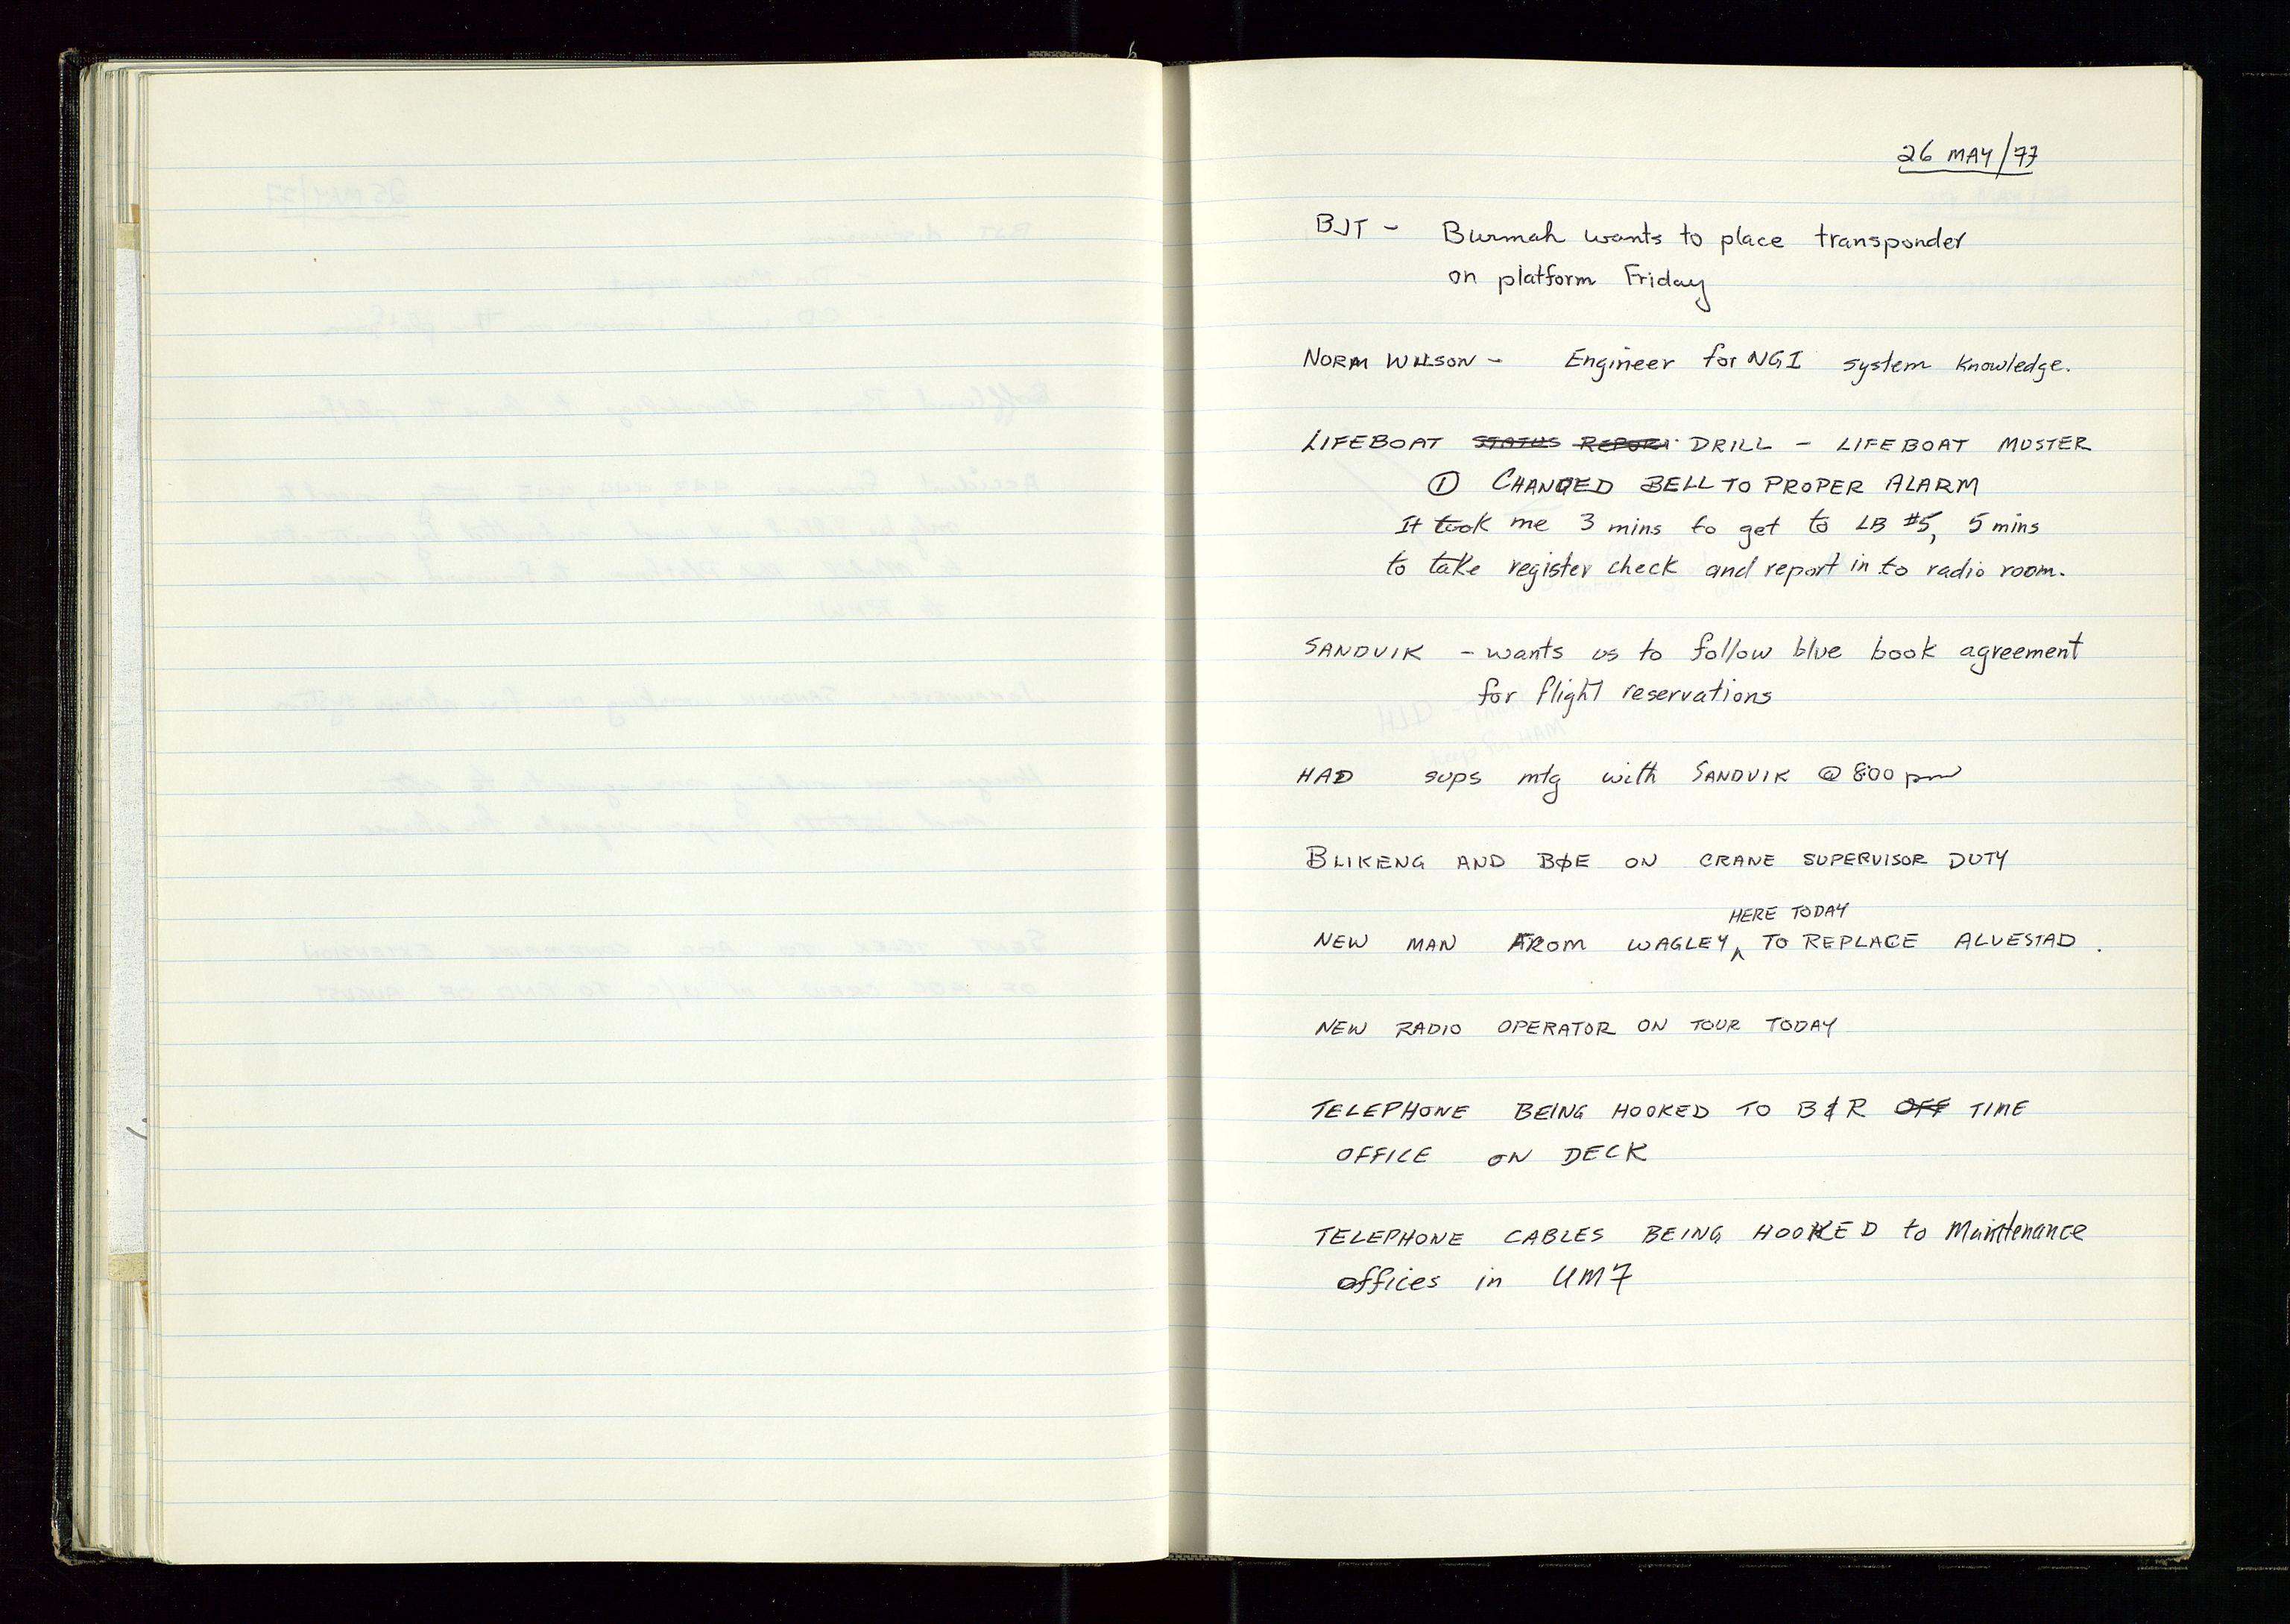 26 MAY/77
BJT - Burmah wants to place transponder
on platform Friday
NORM WILSON - Engineer for NGI system knowledge.
LIFEBOAT STATUS REPORT DRILL - LIFEBOAT MUSTER
① CHANGED BELL TO PROPER ALARM
It took me 3 mins to get to LB #5, 5 mins
to take register check and report in to radio room.
SANDVIK - wants us to follow blue book agreement
for flight reservations
HAD sups mtg with SANDVIK @ 800 pm
BLIKENG AND BØE ON CRANE SUPERVISOR DUTY
HERE TODAY
NEW MAN FROM WAGLEY ^ TO REPLACE ALVESTAD.
NEW RADIO OPERATOR ON TOUR TODAY
TELEPHONE BEING HOOKED TO B&R OFF TIME
OFFICE ON DECK
TELEPHONE CABLES BEING HOOKED to Maintenance
offices in UM7